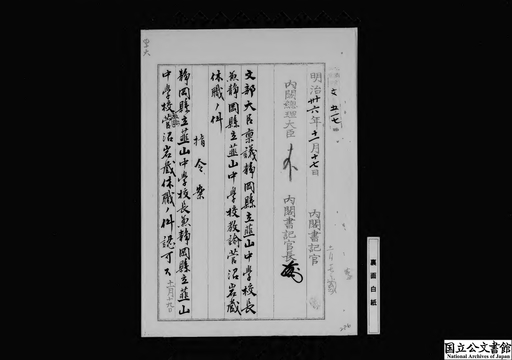 明治卅六年十一月十七日
内閣書記官
内閣總理大臣
内閣書記官長
文部大臣稟議静岡縣立韮山中學校長
兼静岡縣立韮山中學校教諭菅沼岩蔵
休職ノ件
指令案
静岡縣立韮山中學校長兼静岡縣立韮山
中學校教諭菅沼岩蔵休職ノ件認可ス
裏面白紙
国立公文書館
National Archives of Japan